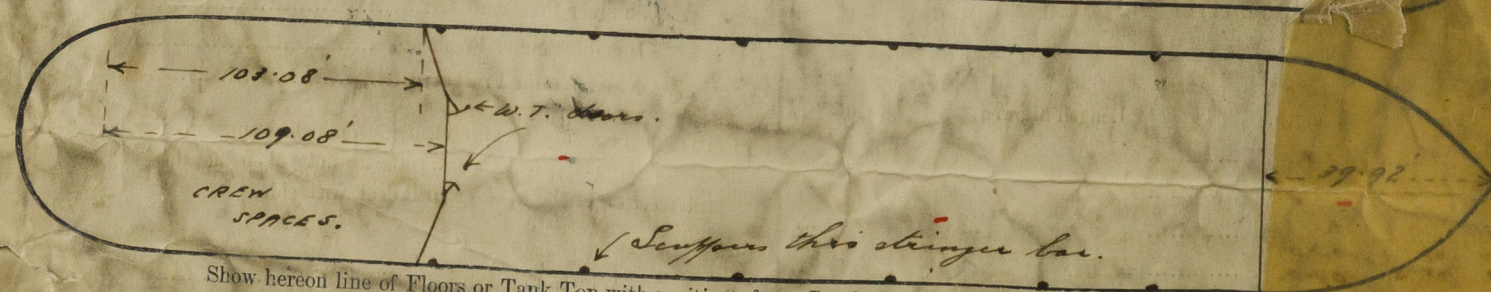 103·08'
W.T. doors.
109·08'
39·92'
CREW
SPACES.
Scuppers thro stringer bar.
Show hereon line of Floors or Tank Top with